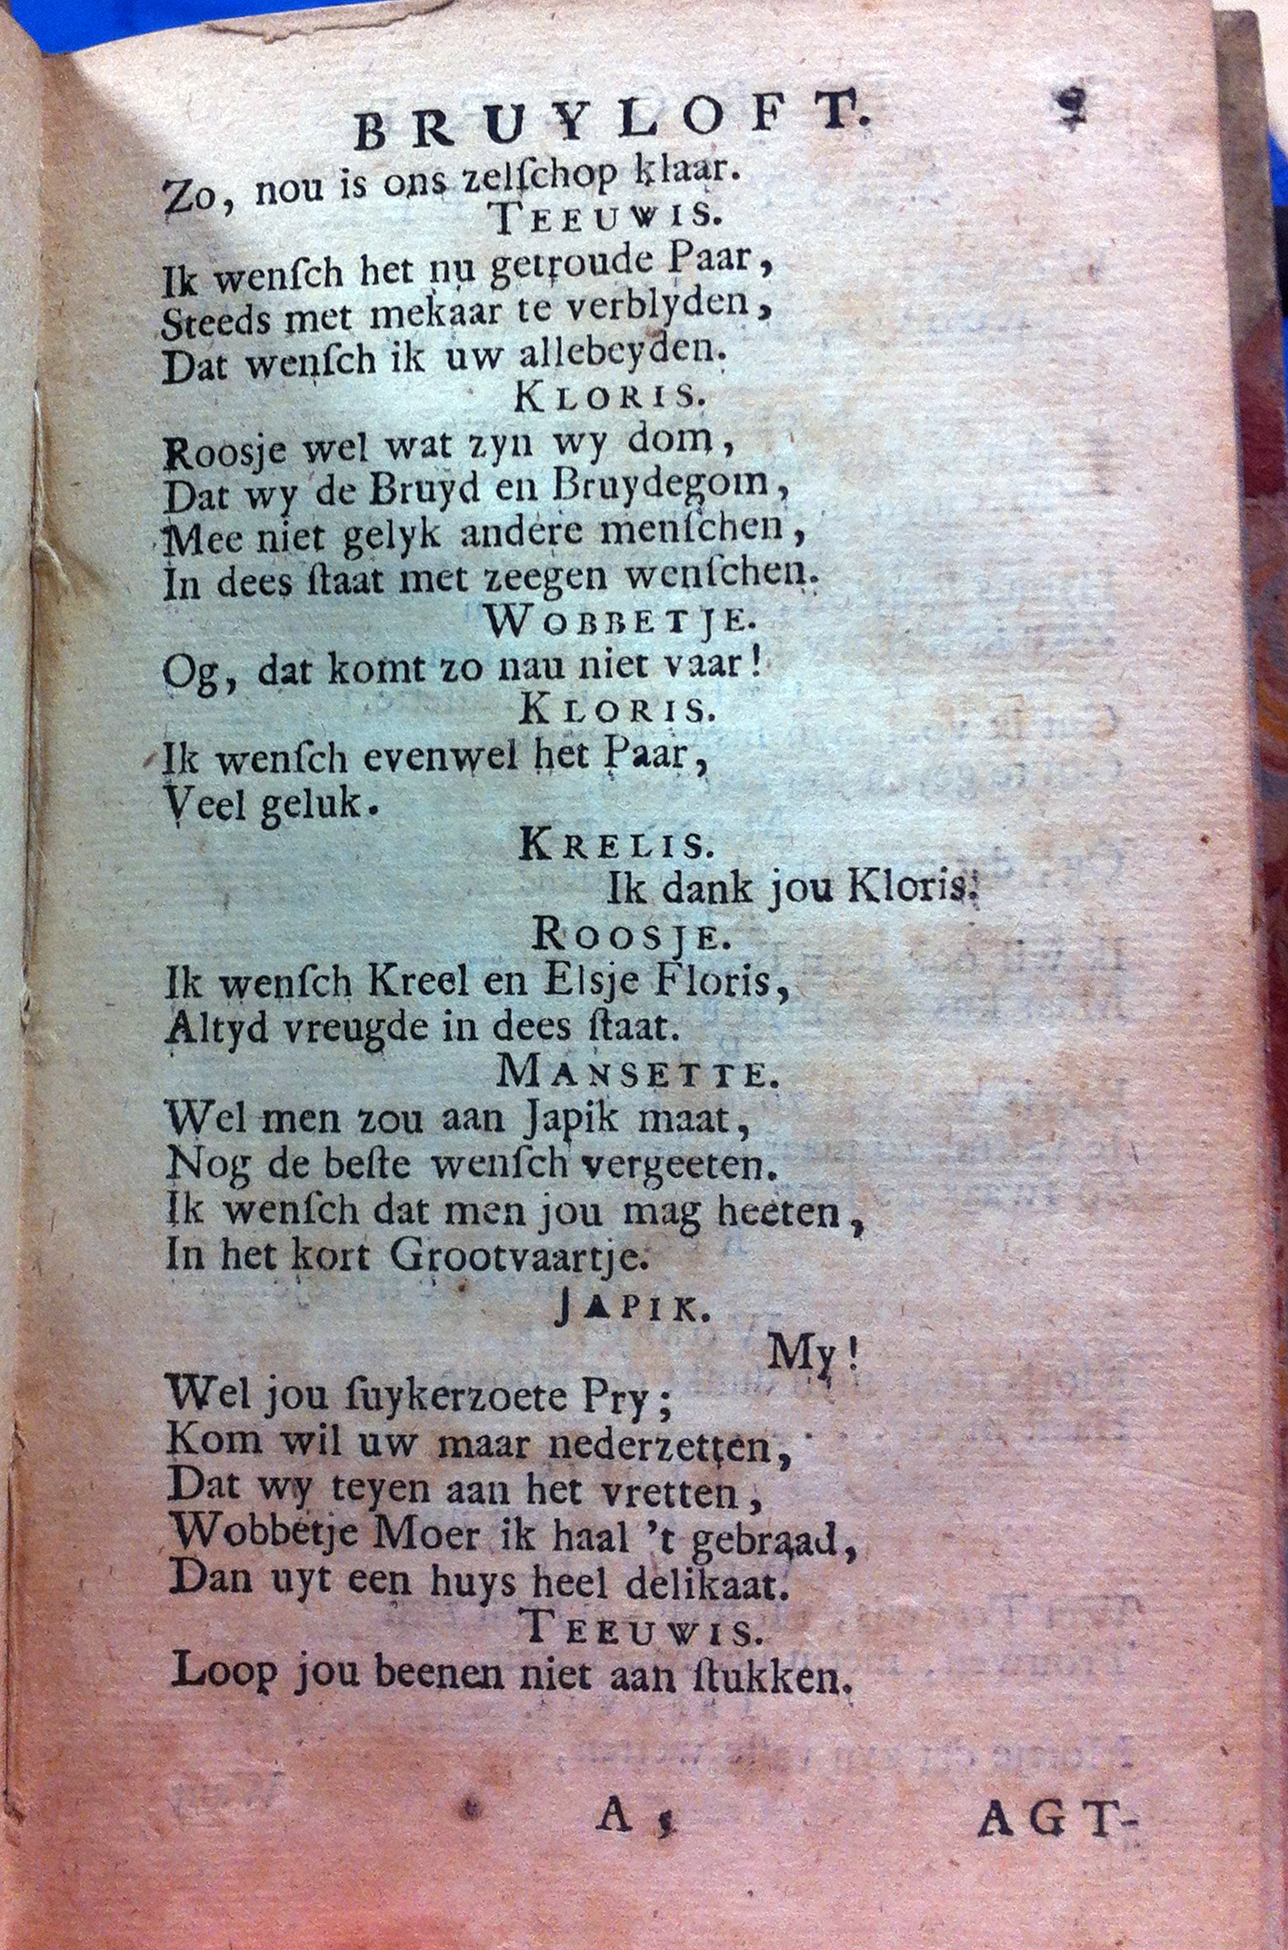 BRUYLOFT. 9
Zo, nou is ons zelſchop klaar.
TEEUWIS.
Ik wenſch het nu getroude Paar,
Steeds met mekaar te verblyden,
Dat wenſch ik uw allebeyden.
KLORIS.
Roosje wel wat zyn wy dom,
Dat wy de Bruyd en Bruydegom,
Mee niet gelyk andere menſchen,
In dees ſtaat met zeegen wenſchen.
WOBBETJE.
Og, dat komt zo nau niet vaar!
KLORIS.
Ik wenſch evenwel het Paar,
Veel geluk.
KRELIS.
Ik dank jou Kloris.
ROOSJE.
Ik wenſch Kreel en Elsje Floris,
Altyd vreugde in dees ſtaat.
MANSETTE.
Wel men zou aan Japik maat,
Nog de beſte wenſch vergeeten.
Ik wenſch dat men jou mag heeten,
In het kort Grootvaartje.
JAPIK.
My!
Wel jou ſuykerzoete Pry;
Kom wil uw maar nederzetten,
Dat wy teyen aan het vretten,
Wobbetje Moer ik haal 't gebraad,
Dan uyt een huys heel delikaat.
TEEUWIS.
Loop jou beenen niet aan ſtukken.
A 5 AGT-